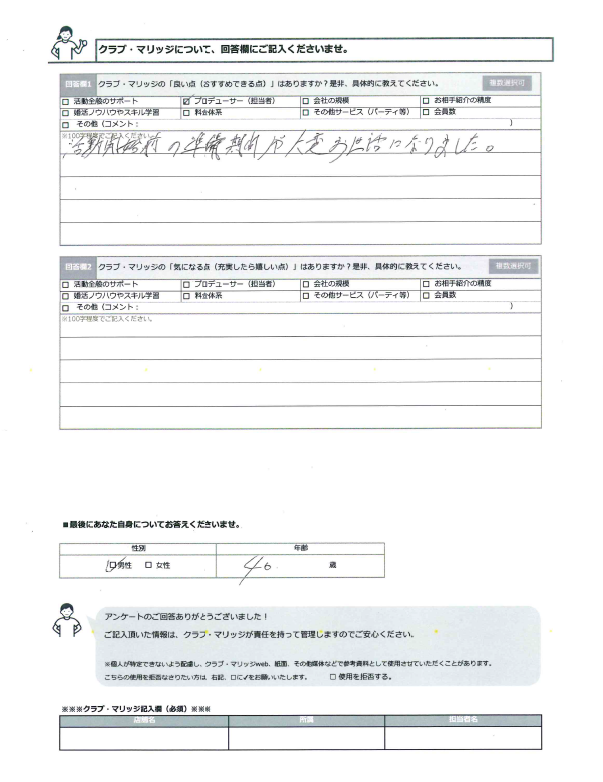 クラブ・マリッジについて、回答欄にご記入くださいませ。
回答欄1 クラブ・マリッジの「良い点（おすすめできる点）」はありますか？是非、具体的に教えてください。 複数選択可
□ 活動全般のサポート ☑ プロデューサー（担当者） □ 会社の規模 □ お相手紹介の精度
□ 婚活ノウハウやスキル学習 □ 料金体系 □ その他サービス（パーティ等） □ 会員数
□ その他（コメント： ）
※100字程度でご記入ください。
活動開始前の準備期間が大変お世話になりました。
回答欄2 クラブ・マリッジの「気になる点（充実したら嬉しい点）」はありますか？是非、具体的に教えてください。 複数選択可
□ 活動全般のサポート □ プロデューサー（担当者） □ 会社の規模 □ お相手紹介の精度
□ 婚活ノウハウやスキル学習 □ 料金体系 □ その他サービス（パーティ等） □ 会員数
□ その他（コメント： ）
※100字程度でご記入ください。
■最後にあなた自身についてお答えくださいませ。
性別 年齢
☑男性 □ 女性 40 歳
アンケートのご回答ありがとうございました！
ご記入頂いた情報は、クラブ・マリッジが責任を持って管理しますのでご安心ください。
※個人が特定できないよう配慮し、クラブ・マリッジweb、紙面、その他媒体などで参考資料として使用させていただくことがあります。
こちらの使用を拒否なさりたい方は、右記、□に✓をお願いいたします。 □ 使用を拒否する。
※※※クラブ・マリッジ記入欄（必須）※※※
店舗名 所属 担当者名